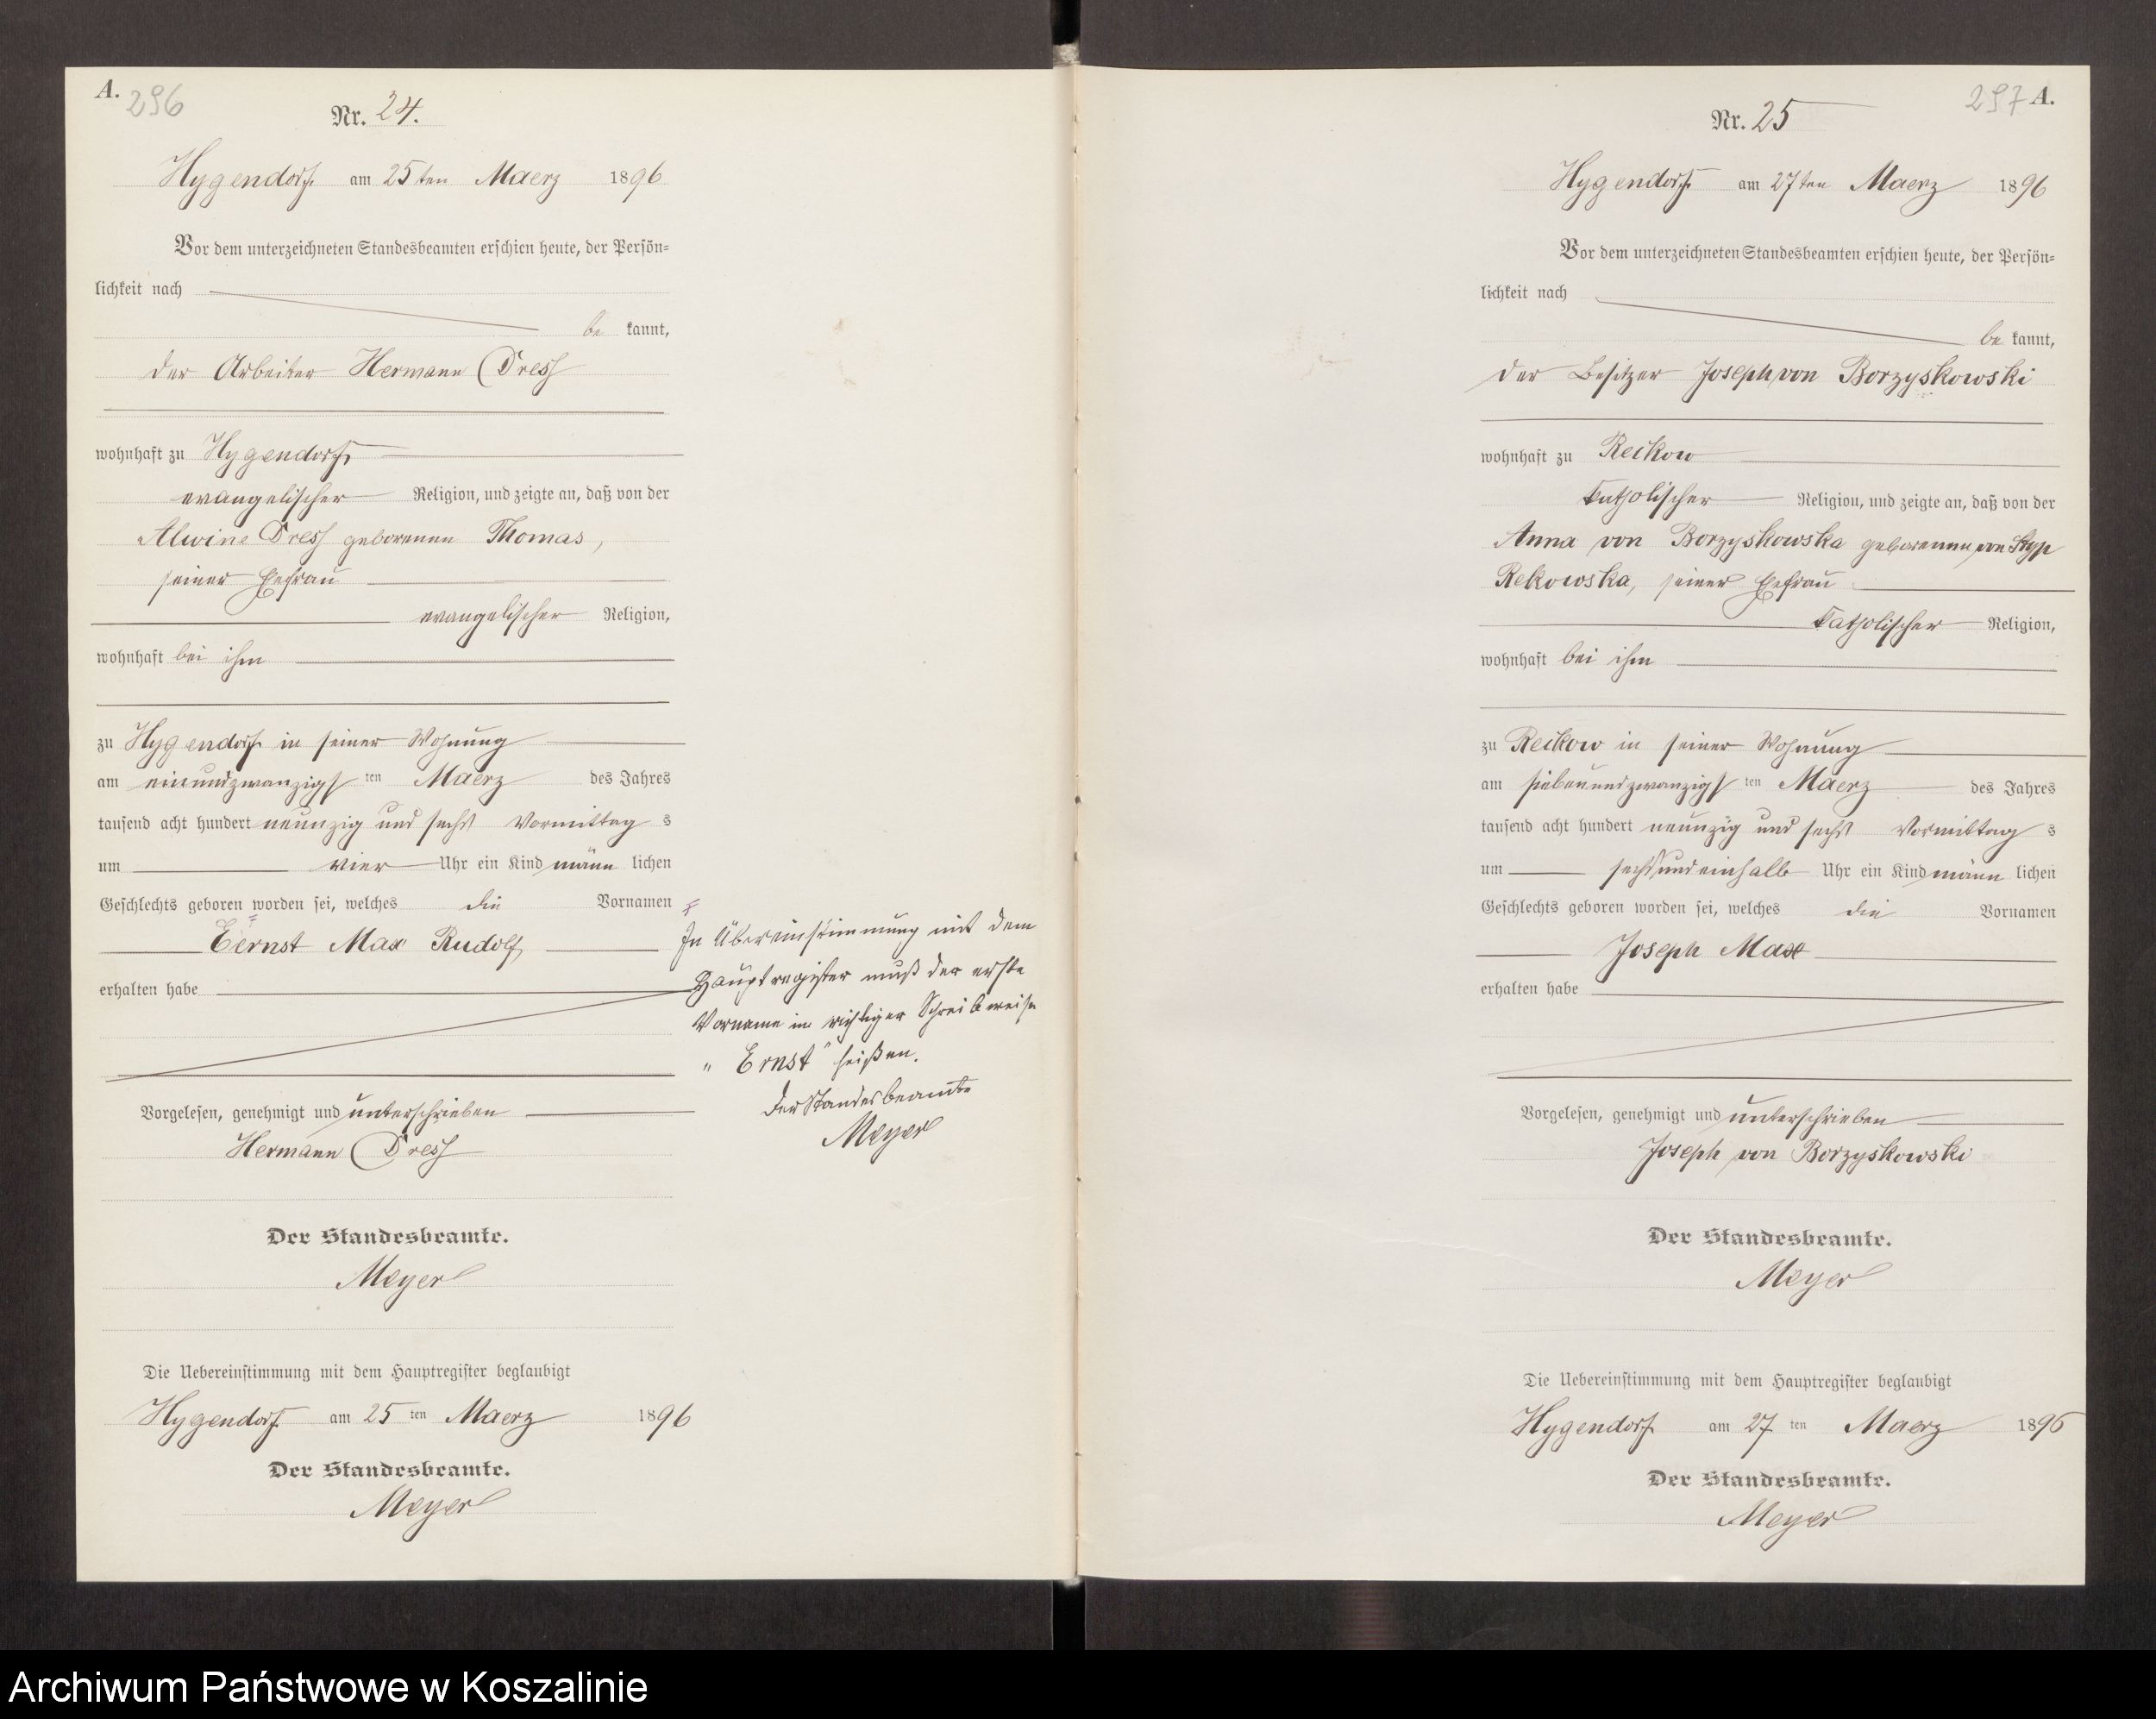 A. 296
Nr. 24.
Hygendorf am 25ten Maerz 1896
Vor dem unterzeichneten Standesbeamten erschien heute, der Persön=
lichkeit nach
be kannt,
der Arbeiter Hermann Dress
wohnhaft zu Hygendorf
evangelischer Religion, und zeigte an, daß von der
Alwine Dress geborenen Thomas,
seiner Ehefrau
evangelischer Religion,
wohnhaft bei ihm
zu Hygendorf in seiner Wohnung
am einundzwanzigs ten Maerz des Jahres
tausend acht hundert neunzig und sechs Vormittag s
um vier Uhr ein Kind männ lichen
Geschlechts geboren worden sei, welches die Vornamen
Eernst Max Rudolf
erhalten habe
Vorgelesen, genehmigt und unterschrieben
Hermann Dress
Der Standesbeamte.
Meyer
Die Uebereinstimmung mit dem Hauptregister beglaubigt
Hygendorf am 25 ten Maerz 1896
Der Standesbeamte.
Meyer
In Übereinstimmung mit dem
Hauptregister muß der erste
Vorname in richtiger Schreibweise
"Ernst" heißen.
Der Standesbeamte
Meyer
297 A.
Nr. 25
Hygendorf am 27ten Maerz 1896
Vor dem unterzeichneten Standesbeamten erschien heute, der Persön=
lichkeit nach
be kannt,
der Besitzer Joseph von Borzyskowski
wohnhaft zu Reckow
katholischer Religion, und zeigte an, daß von der
Anna von Borzyskowska geborenen von Styp
Rekowska, seiner Ehefrau
katholischer Religion,
wohnhaft bei ihm
zu Reckow in seiner Wohnung
am siebenundzwanzigs ten Maerz des Jahres
tausend acht hundert neunzig und sechs Vormittag s
um sechsundeinhalb Uhr ein Kind männ lichen
Geschlechts geboren worden sei, welches die Vornamen
Joseph Max
erhalten habe
Vorgelesen, genehmigt und unterschrieben
Joseph von Borzyskowski
Der Standesbeamte.
Meyer
Die Uebereinstimmung mit dem Hauptregister beglaubigt
Hygendorf am 27 ten Maerz 1896
Der Standesbeamte.
Meyer
Archiwum Państwowe w Koszalinie